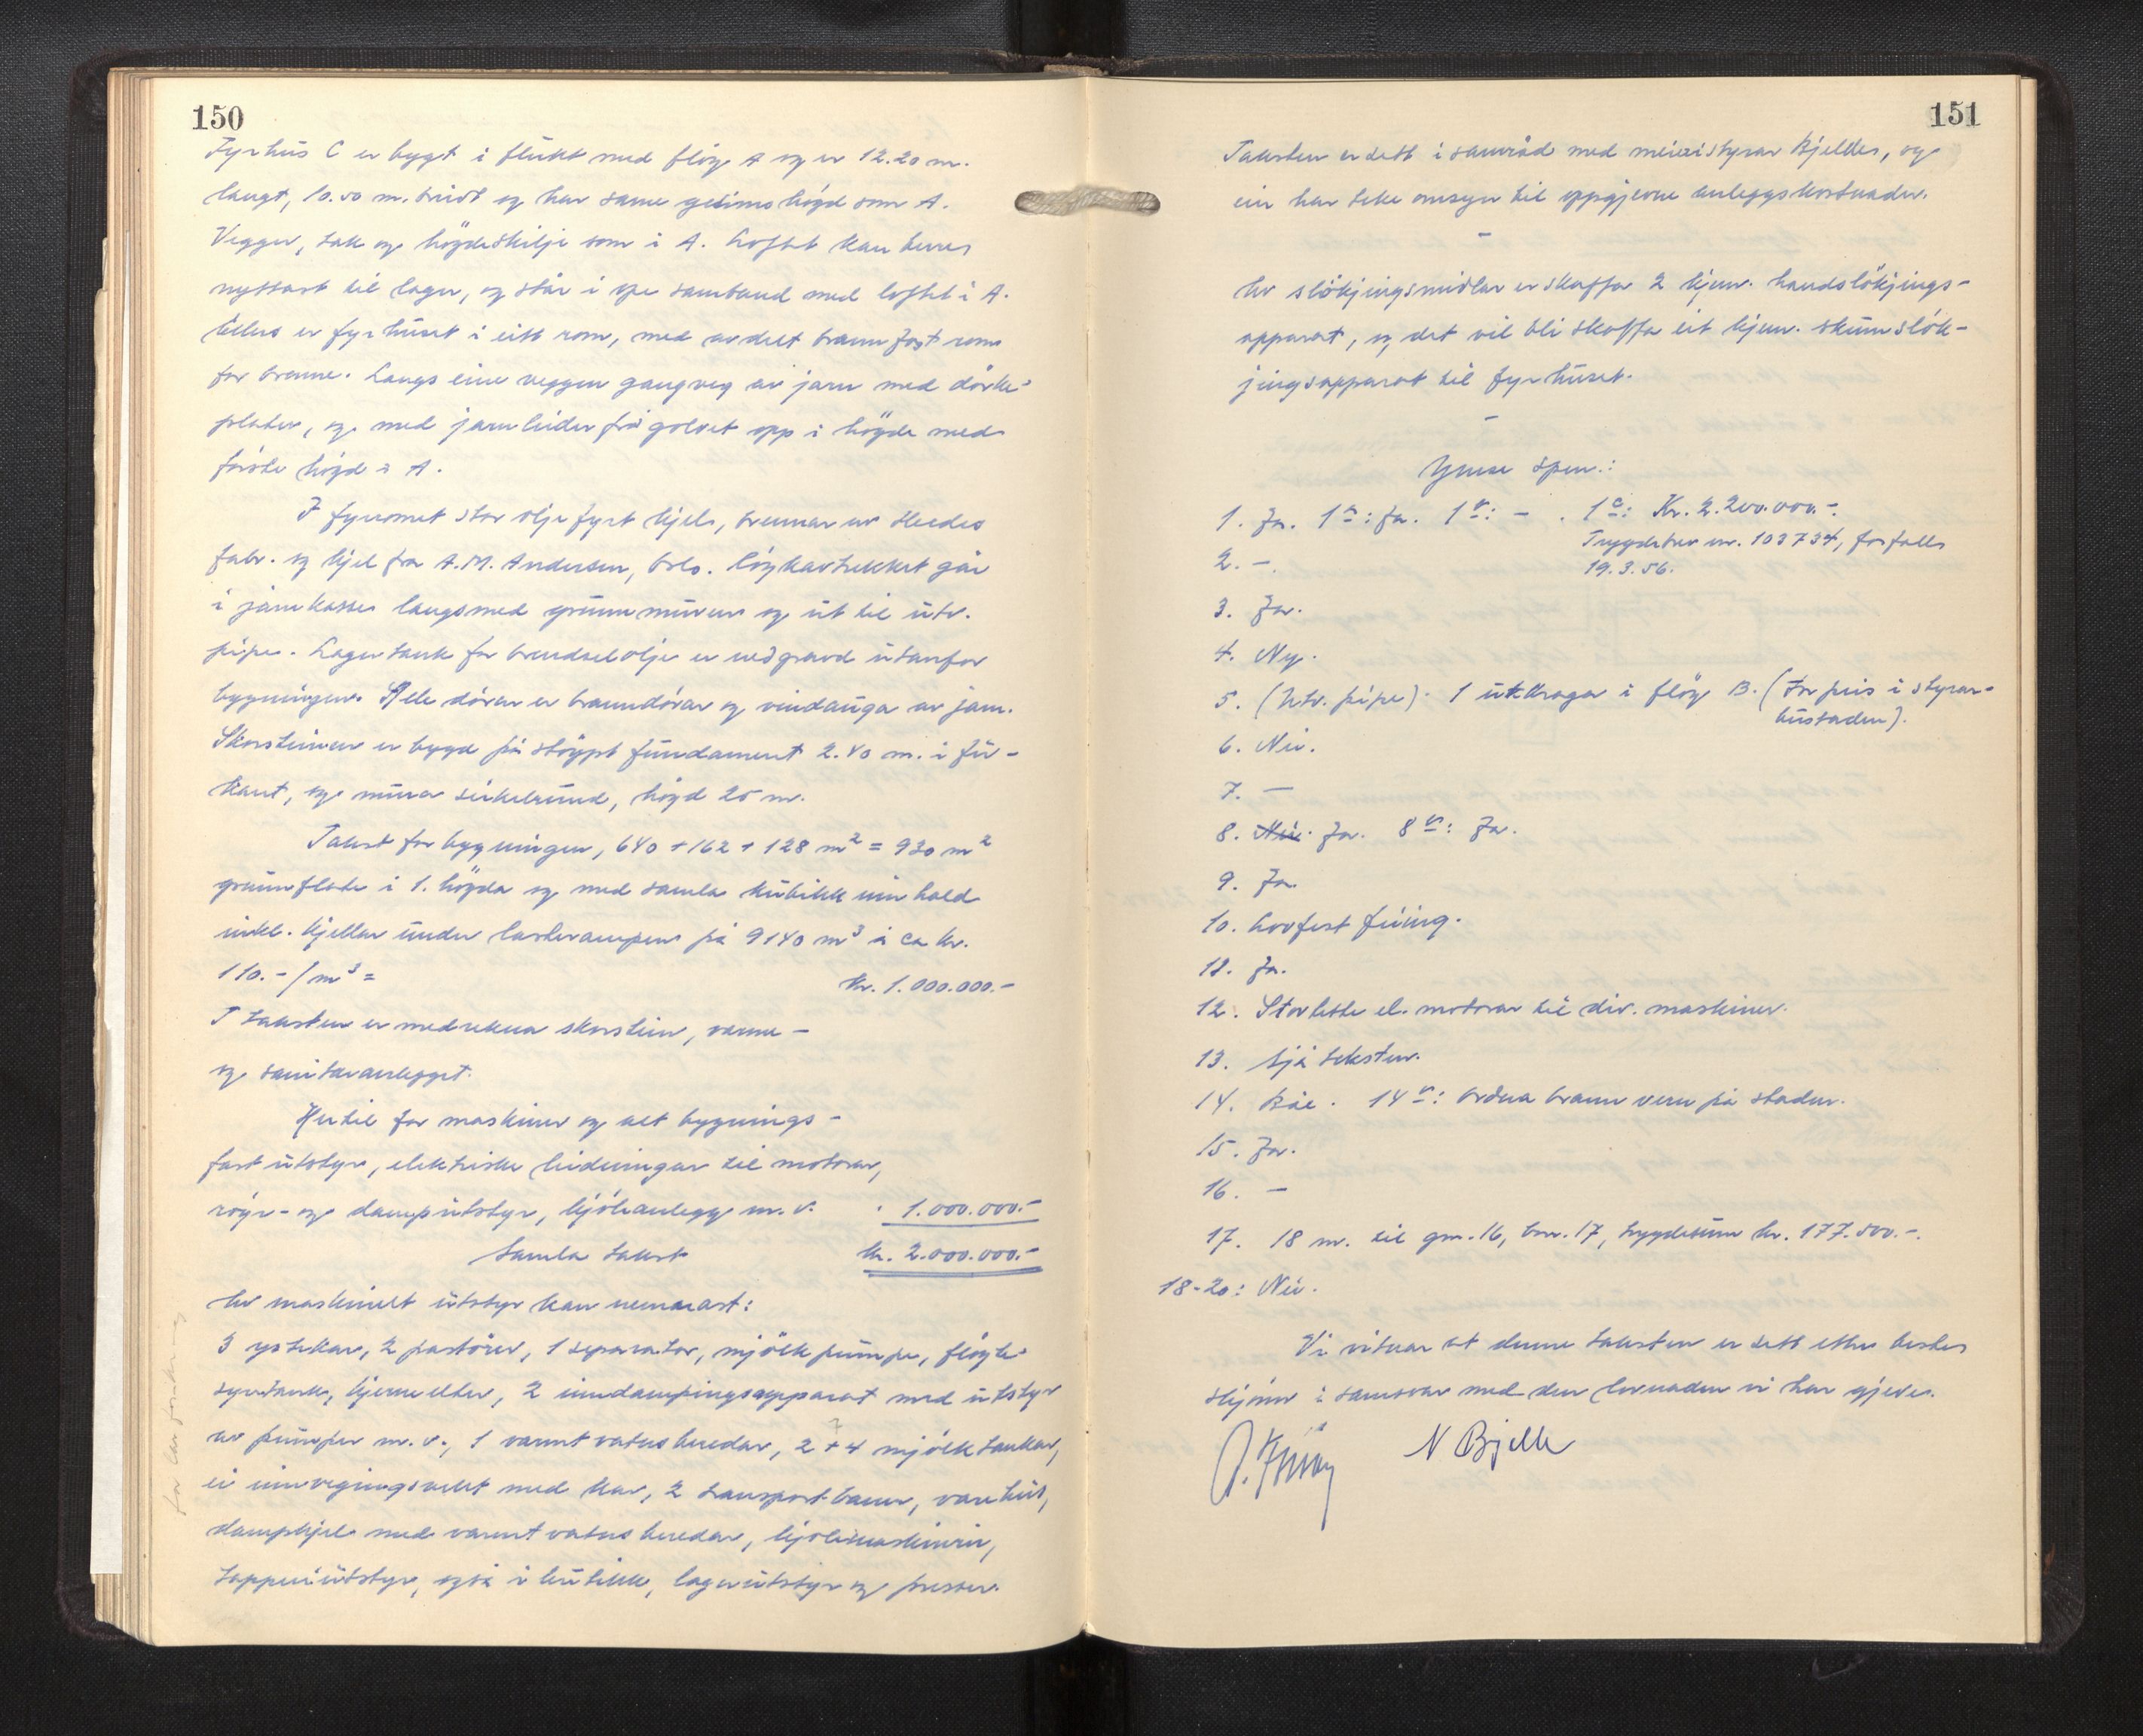 150
Fyrhus C er bygt i flukt med fløy A og er 12.20 m.
langt, 10.50 m. breidt og har same gesimshögd som A.
Vegger, tak og högdeskilje som i A. Loftet kan berre
nyttast til lager, og står i ope samband med loftet i A.
Elles er fyrhuset i eitt rom, med avdelt brannfast rom
for brenne. Langs eine veggen gangveg av jarn med dörke-
plater, og med jarnleider frå golvet opp i högde med
förste högd i A.
I fyrromet står oljefyrt kjel, brennar av
fabr. og kjel fra A.M. Andersen, Oslo. Röykavtrekket går
i jarnkasse langsmed grunnmuren og ut til utv.
pipe. Lagertank for brendselolje er nedgravd utanfor
bygningen. Alle dörar er branndörar og vindauga av jarn.
Skorsteinen er bygd på støypt fundament 2.40 m. i fir-
kant, og mura sirkelrund, högd 25 m.
Takst for bygningen, 640 + 162 + 128 m² = 930 m²
grunnflate i 1. högda og med samla kubikk innhald
inkl. kjellar under lasterampen på 9140 m³ à ca kr.
110.-/m³ = kr. 1.000.000.-
I taksten er medrekna skorstein, varme-
og sanitæranlegget.
Hertil for maskiner og alt bygnings-
fast utstyr, elektriske leidningar til motorar,
röyr- og damputstyr, kjöleanlegg m.v. " 1.000.000.-
Samla takst kr. 2.000.000.-
Av maskinelt utstyr kan nemnast:
3 ystekar, 2 pastörer, 1 separator, mjölkpumpe, flöyte-
syretank, kjerneelter, 2 inndampingsapparat med utstyr
av pumper m.v., 1 varmtvatnsberedar, 2 + 4 mjölketankar,
ei innvegingsvekt med kar, 2 transportbaner, vareheis,
dampkjel med varmtvatnsberedar, kjölemaskineri,
tapperiutstyr, også i butikk, lagerutstyr og presser.
151
Taksten er sett i samråd med meieristyrar Bjelle, og
ein har teke omsyn til oppgjevne anleggskostnader.
-
Av slökjingsmidlar er skaffa 2 kjem. handslökjings-
apparat, og det vil bli skaffa eit kjem. skumslök-
jingsapparat til fyrhuset.
-
Ymse spm.:
1. Ja. 1a: Ja. 1b: - . 1c: Kr. 2.200.000.-.
Trygdebrev nr. 103734, forfall
2. -. 19.3.56.
3. Ja.
4. Ny.
5. (Utv. pipe). 1 utkragar i flöy B. (For peis i styrar-
bustaden).
6. Nei.
7. -
8. Nei. Ja. 8b: Ja.
9. Ja.
10. Lovfest feiing.
11. Ja.
12. Stortette el. motorar til div. maskiner.
13. Sjå teksten.
14. Bae. 14b: Ordna brannvern på staden.
15. Ja.
16. -
17. 18 m. til gnr. 16, bnr. 17, trygdesum kr. 177.500.-.
18-20: Nei.
Vi vitnar at denne taksten er sett etter beste
skjönn i samsvar med den lovnaden vi har gjeve.
N Bjelle